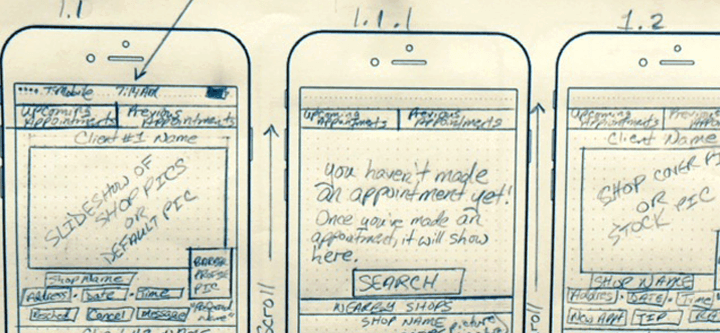 1.1
T-Mobile 7:14AM
Upcoming Appointments
Previous Appointments
Client #1 Name
SLIDESHOW OF
SHOP PICS
OR
DEFAULT PIC
BARBER
PROFILE
PIC
Shop Name
Address · Date · Time
Resched Cancel Message
Scroll
1.1.1
Upcoming Appointments
Previous Appointments
you haven't made
an appointment yet!
Once you've made an
appointment, it will show
here.
SEARCH
NEARBY SHOPS
SHOP NAME
picture
Scroll
1.2
Upcoming Appointments
Previous
Appointments
Client Name
SHOP COVER
OR
STOCK PIC
SHOP NAME
Address · DATE · Time
New Appt TIP